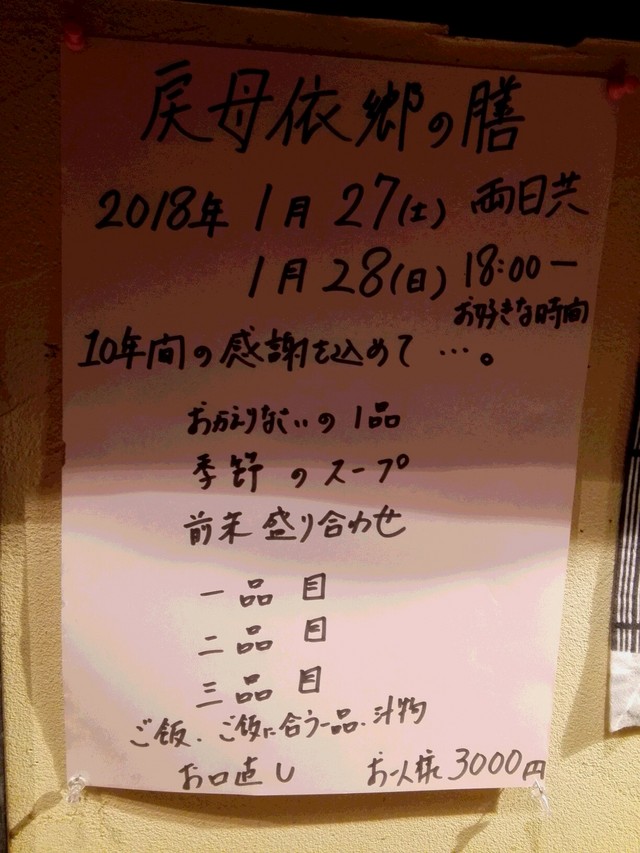 戻母依郷の膳
2018年 1月 27(土) 両日共
1月 28(日) 18:00ー
お好きな時間
10年間の感謝を込めて …。
おかえりなさいの1品
季節のスープ
前菜盛り合わせ
一品目
二品目
三品目
ご飯、ご飯に合う一品、汁物
お口直し お一人様 3000円